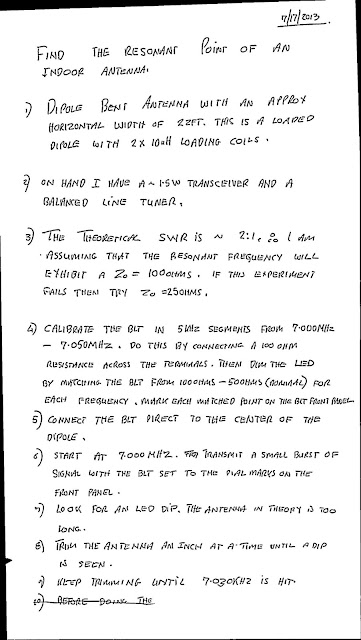 7/17/2013
FIND THE RESONANT POINT OF AN
INDOOR ANTENNA.
1) DIPOLE BENT ANTENNA WITH AN APPROX
HORIZONTAL WIDTH OF 22FT. THIS IS A LOADED
DIPOLE WITH 2X 10uH LOADING COILS.
2) ON HAND I HAVE A ~ 1.5W TRANSCEIVER AND A
BALANCED LINE TUNER.
3) THE THEORETICAL SWR IS ~ 2:1. ∴ I AM
ASSUMING THAT THE RESONANT FREQUENCY WILL
EXHIBIT A Zo = 100OHMS. IF THIS EXPERIMENT
FAILS THEN TRY Zo = 25OHMS.
4) CALIBRATE THE BLT IN 5KHz SEGMENTS FROM 7.000MHz
- 7.050MHz. DO THIS BY CONNECTING A 100 OHM
RESISTANCE ACROSS THE TERMINALS. THEN DIM THE LED
BY MATCHING THE BLT FROM 100OHMS - 50OHMS (NOMINAL) FOR
EACH FREQUENCY. MARK EACH MATCHED POINT ON THE BLT FRONT PANEL.
5) CONNECT THE BLT DIRECT TO THE CENTER OF THE
DIPOLE.
6) START AT 7.000 MHZ. TRANSMIT A SMALL BURST OF
SIGNAL WITH THE BLT SET TO THE DIAL MARKS ON THE
FRONT PANEL.
7) LOOK FOR AN LED DIP. THE ANTENNA IN THEORY IS TOO
LONG.
8) TRIM THE ANTENNA AN INCH AT A TIME UNTIL A DIP
IS SEEN.
9) KEEP TRIMMING UNTIL 7.030KHZ IS HIT.
10) BEFORE DOING THE